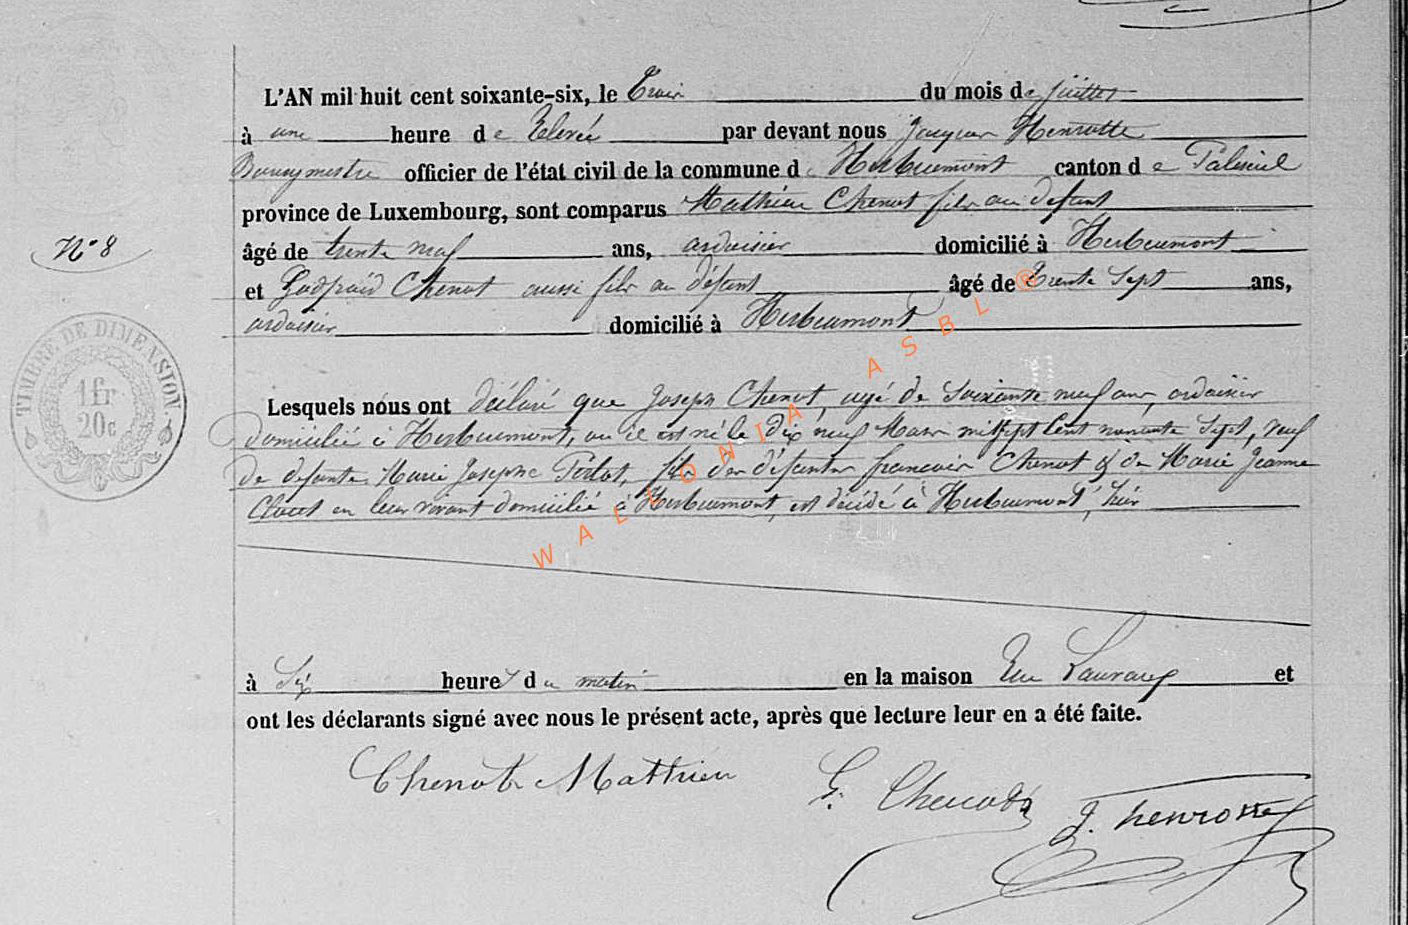 L'AN mil huit cent soixante-six, le Trois du mois de juillet
à une heure de Relevée par devant nous Jacques Henrotte
Bourgmestre officier de l'état civil de la commune de Herbeumont canton de Paliseul
province de Luxembourg, sont comparus Mathieu Chenot fils au défunt
N° 8
âgé de trente neuf ans, ardoisier domicilié à Herbeumont
et Godfroid Chenot aussi fils au défunt âgé de Trente Sept ans,
ardoisier domicilié à Herbeumont
TIMBRE DE DIMENSION.
1 fr
20c
Lesquels nous ont déclaré que Joseph Chenot, agé de Soixante neuf ans, ardoisier
domicilié à Herbeumont, ou il est né le dix neuf Mars mil sept cent nonante Sept, veuf
de defunte Marie Josephe, fils des défunts francois Chenot & de Marie Jeanne
en leur vivant domicilié à Herbeumont, est décédé à Herbeumont, hier
à Six heures du matin en la maison Rue et
ont les déclarants signé avec nous le présent acte, après que lecture leur en a été faite.
Chenot Mathieu
G. Chenot
J. henrotte
WALLONIA ASBL ®